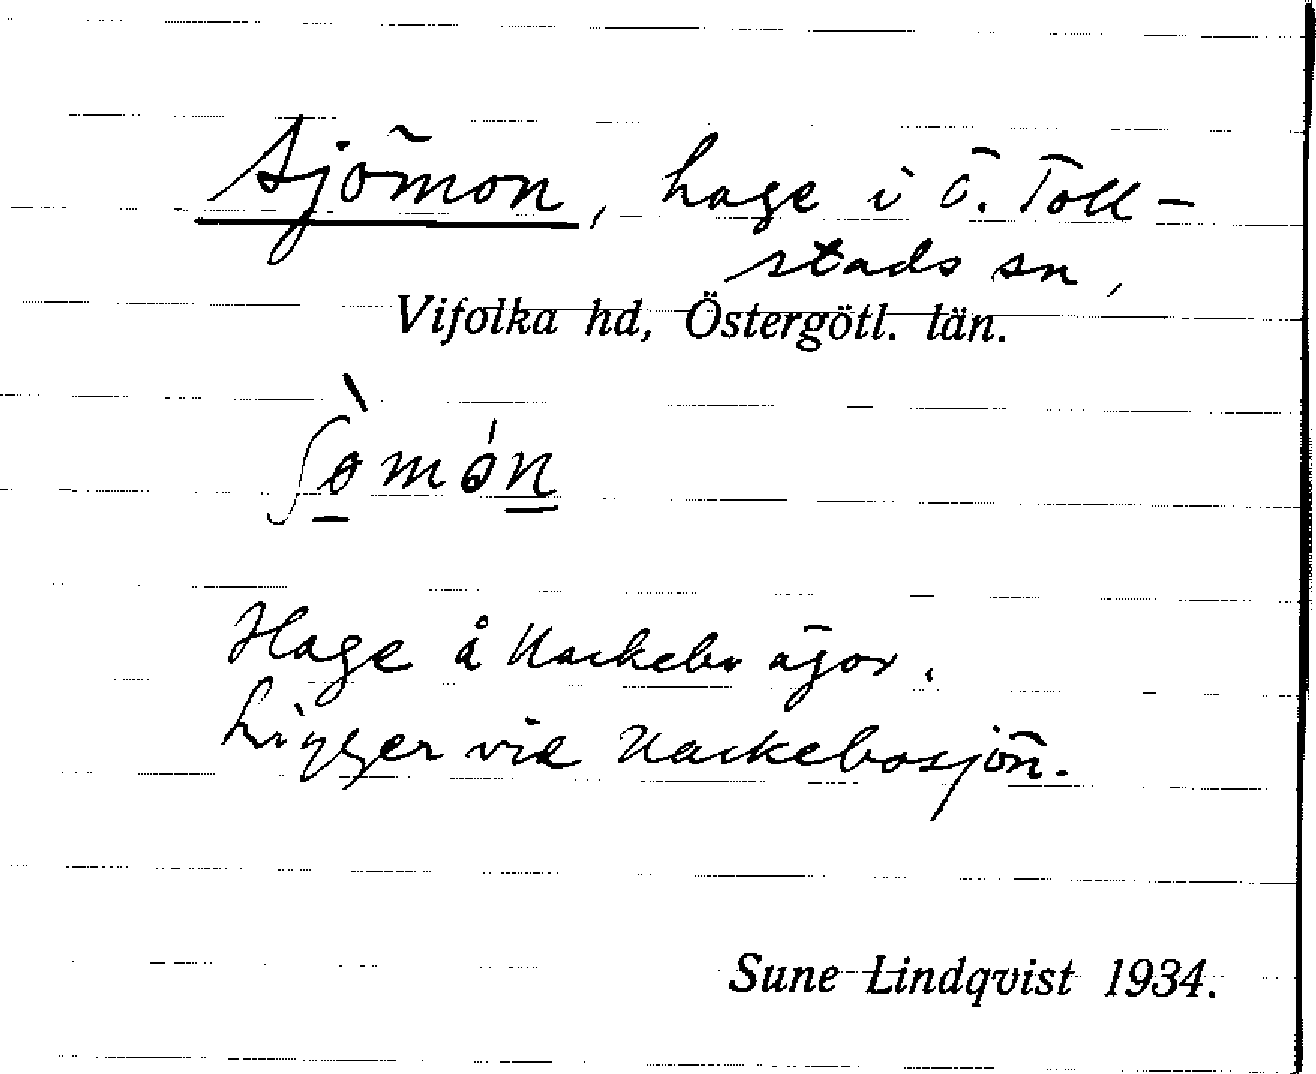 Sjömon, hage i Ö. Toll-
stads sn,
Vifolka hd, Östergötl. län.
Hage å Nackebo ägor.
Ligger vid Nackebosjön.
Sune Lindqvist 1934.